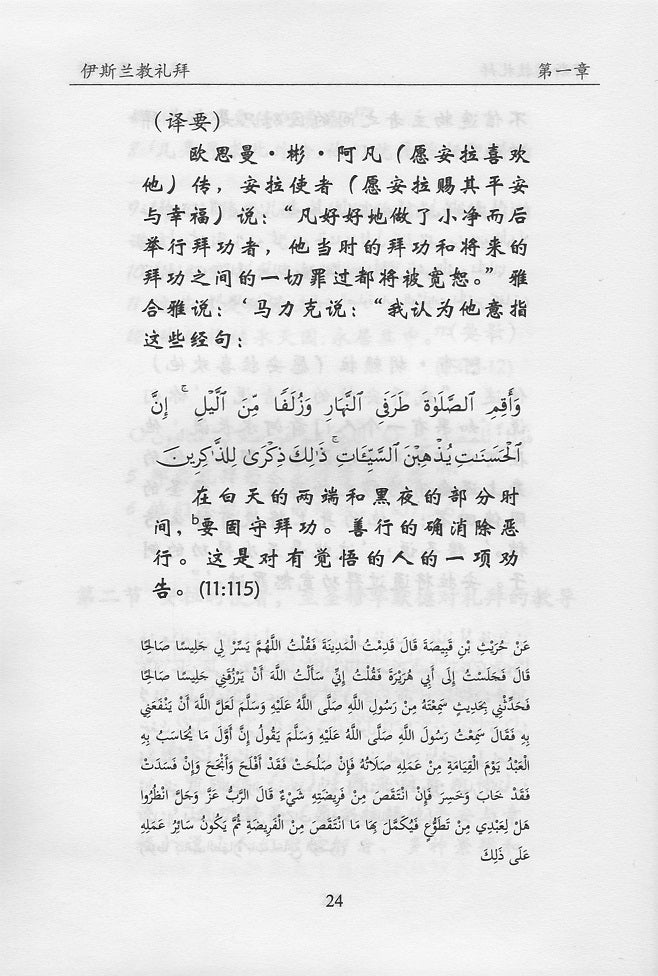 伊斯兰教礼拜 第一章
(译要)
欧思曼·彬·阿凡(愿安拉喜欢
他)传,安拉使者(愿安拉赐其平安
与幸福)说:“凡好好地做了小净而后
举行拜功者,他当时的拜功和将来的
拜功之间的一切罪过都将被宽恕。”雅
合雅说:‘马力克说:“我认为他意指
这些经句:
وَأَقِمِ ٱلصَّلَوٰةَ طَرَفَىِ ٱلنَّهَارِ وَزُلَفًا مِّنَ ٱلَّيْلِ ۚ إِنَّ
ٱلْحَسَنَـٰتِ يُذْهِبْنَ ٱلسَّيِّـَٔاتِ ۚ ذَٰلِكَ ذِكْرَىٰ لِلذَّٰكِرِينَ
在白天的两端和黑夜的部分时
间,b要固守拜功。善行的确消除恶
行。这是对有觉悟的人的一项劝
告。(11:115)
عَنْ حُرَيْثِ بْنِ قَبِيصَةَ قَالَ قَدِمْتُ الْمَدِينَةَ فَقُلْتُ اللَّهُمَّ يَسِّرْ لِي جَلِيسًا صَالِحًا
قَالَ فَجَلَسْتُ إِلَى أَبِي هُرَيْرَةَ فَقُلْتُ إِنِّي سَأَلْتُ اللَّهَ أَنْ يَرْزُقَنِي جَلِيسًا صَالِحًا
فَحَدِّثْنِي بِحَدِيثٍ سَمِعْتَهُ مِنْ رَسُولِ اللَّهِ صَلَّى اللَّهُ عَلَيْهِ وَسَلَّمَ لَعَلَّ اللَّهَ أَنْ يَنْفَعَنِي
بِهِ فَقَالَ سَمِعْتُ رَسُولَ اللَّهِ صَلَّى اللَّهُ عَلَيْهِ وَسَلَّمَ يَقُولُ إِنَّ أَوَّلَ مَا يُحَاسَبُ بِهِ
الْعَبْدُ يَوْمَ الْقِيَامَةِ مِنْ عَمَلِهِ صَلَاتُهُ فَإِنْ صَلُحَتْ فَقَدْ أَفْلَحَ وَأَنْجَحَ وَإِنْ فَسَدَتْ
فَقَدْ خَابَ وَخَسِرَ فَإِنْ انْتَقَصَ مِنْ فَرِيضَتِهِ شَيْءٌ قَالَ الرَّبُّ عَزَّ وَجَلَّ انْظُرُوا
هَلْ لِعَبْدِي مِنْ تَطَوُّعٍ فَيُكَمَّلَ بِهَا مَا انْتَقَصَ مِنْ الْفَرِيضَةِ ثُمَّ يَكُونُ سَائِرُ عَمَلِهِ
عَلَى ذَلِكَ
24